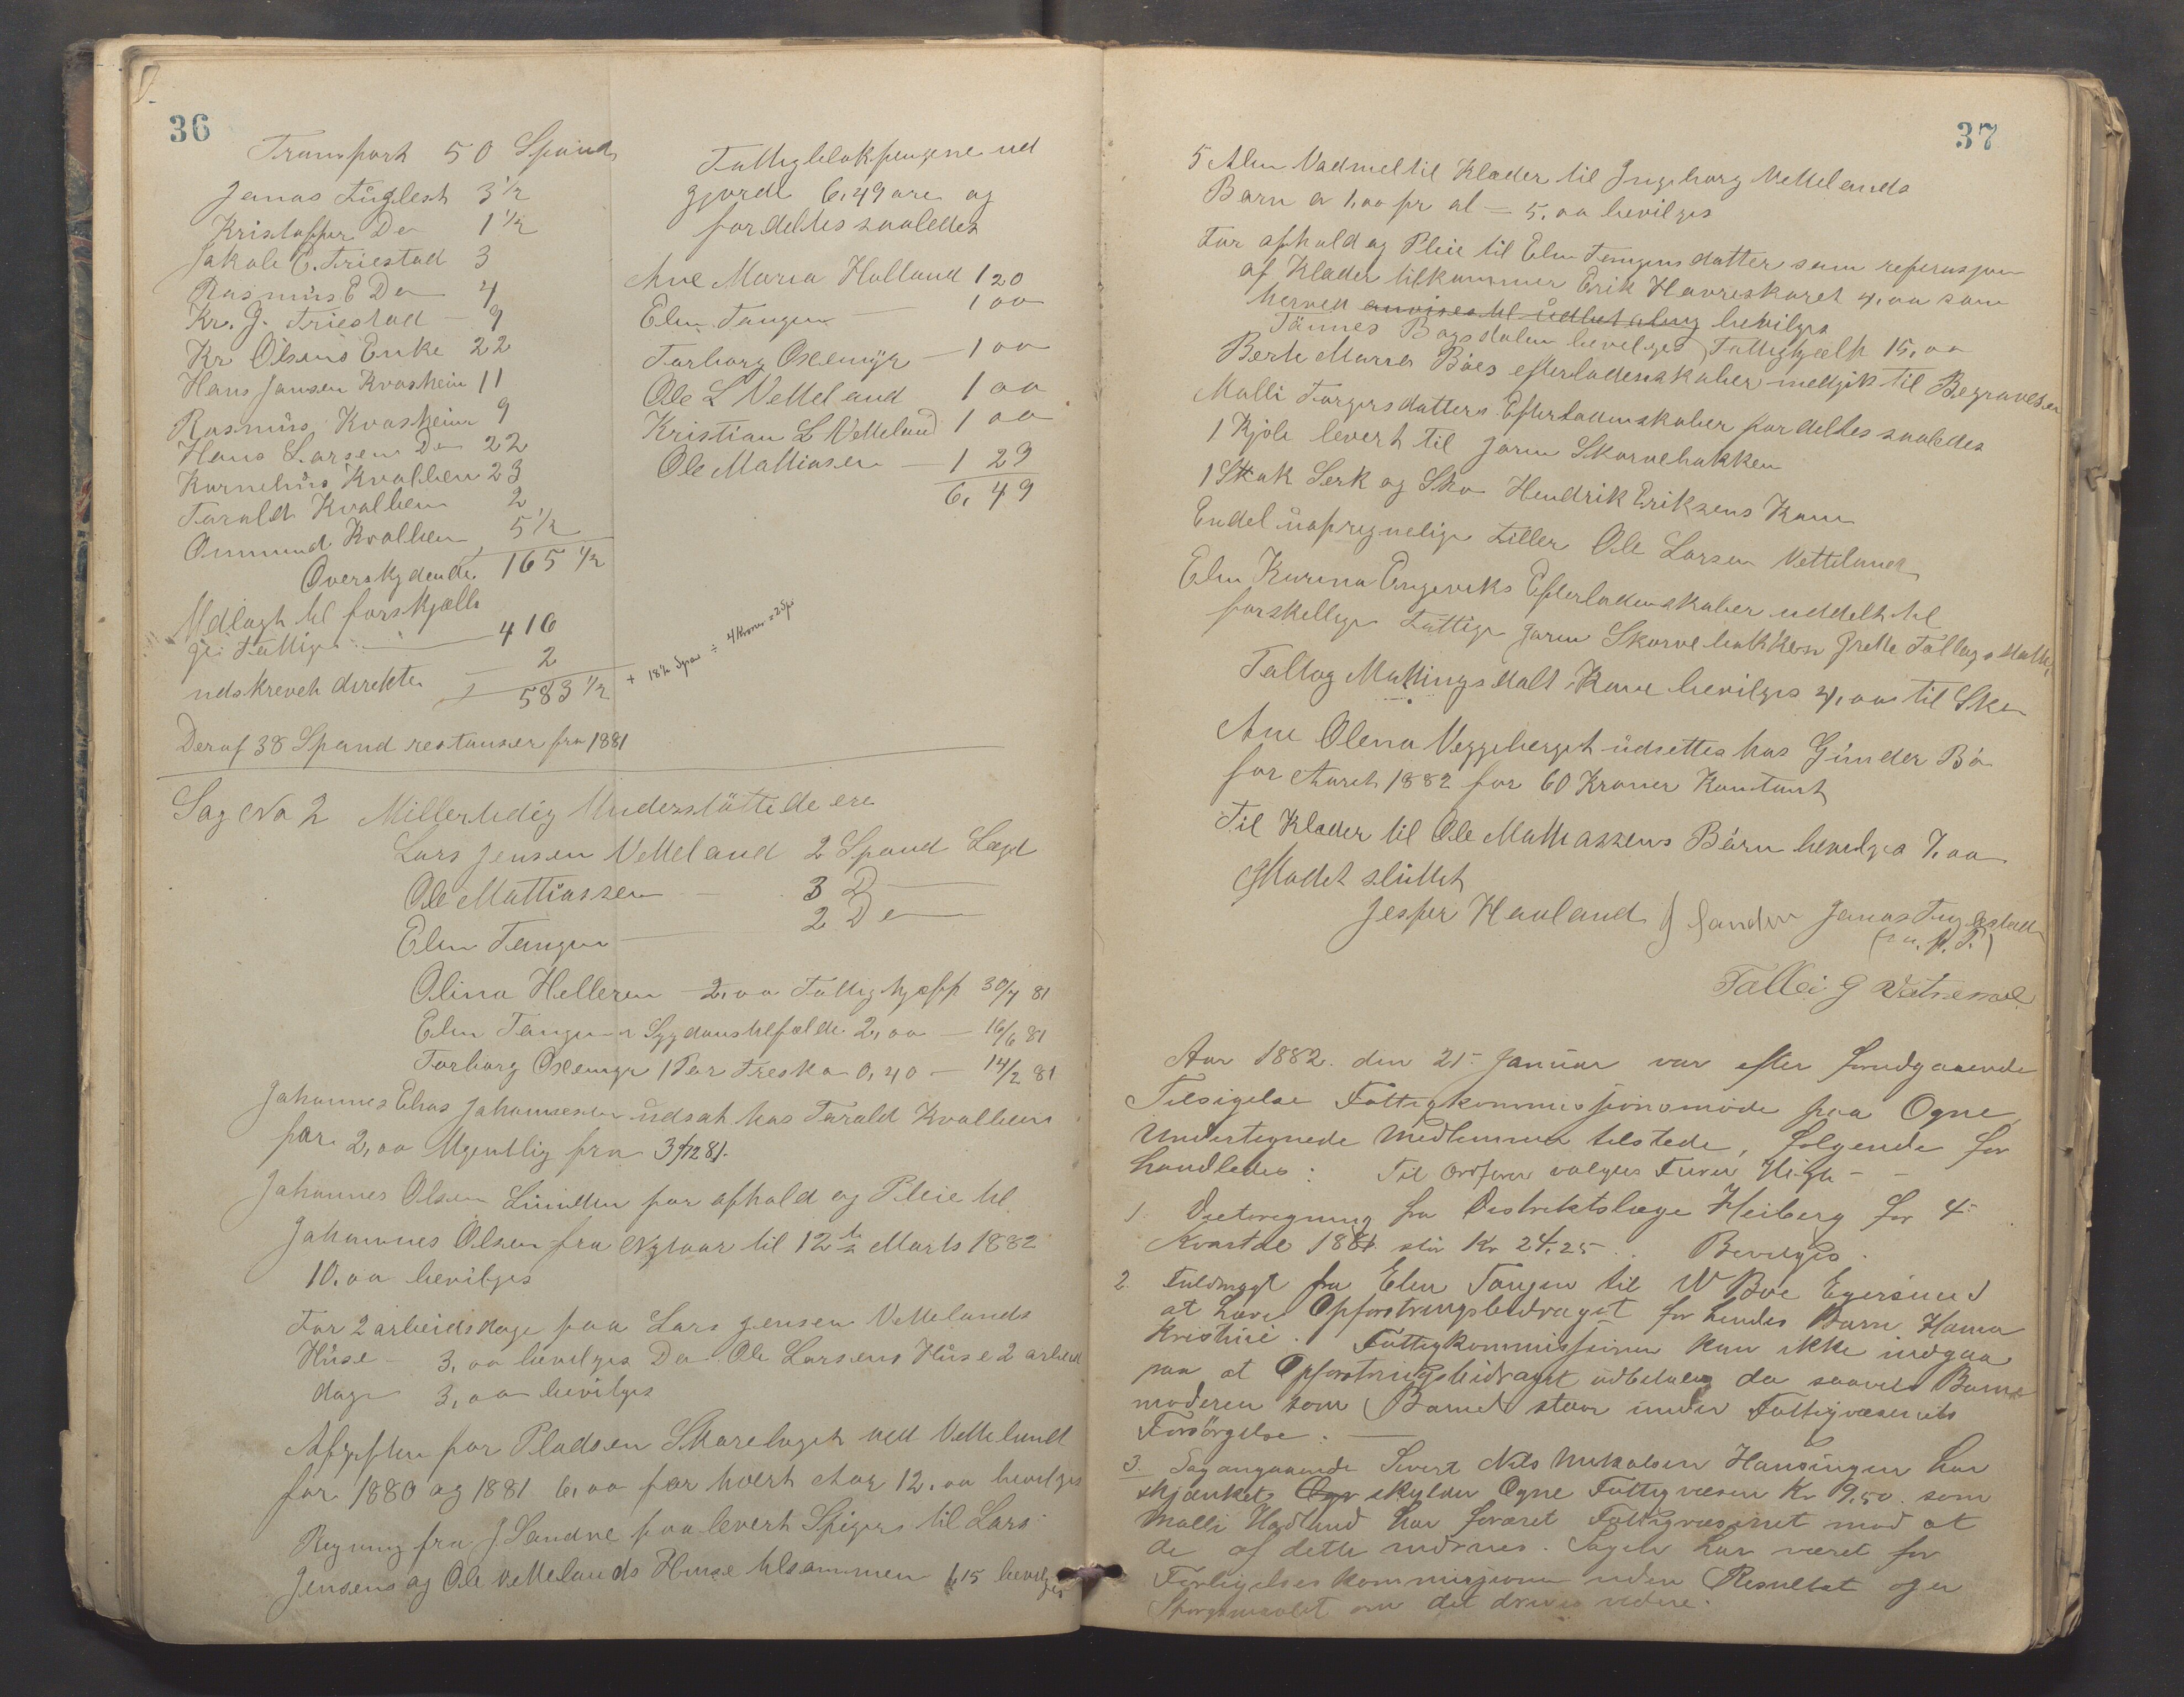 36
Transport 50 Spand
Jonas Fuglest 3 1/2
Kristoffer Do 1 1/2
Jakob C. Friestad 3
Rasmus E Do 4
Kr. G. Friestad 9
Kr Olsens Enke 22
Hans Jansen Kvasheim 11
Rasmus Kvasheim 9
Hans Larsen Do 22
Kornelius Kvalben 23
Torald Kvalben 2
Ommund Kvalben 5 1/2
Overskydende 165 1/2
Udlagt til forskjelli
ge Fattige 416
udskrevet direkte 2
583 1/2
+ 18 1/2 Span ÷ 4 Kroner = 2 Sp.
Deraf 38 Spand restanser fra 1881
Fattigblokpengene ud
gjorde 6,49 øre og
fordeltes saaledes
Ane Maria Holland 1 20
Elen Tangen 1 00
Torborg Oxemyr 1 00
Ole L Vetteland 1 00
Kristian L Vetteland 1 00
Ole Mattiasen 1 29
6, 49
Sag No 2 Millertidig Understöttede ere
Lars Jensen Vetteland 2 Spand Lægd
Ole Mattiassen 3 D
Elen Tangen 2 Do
Olina Helleren 2,00 Fattighjælp 30/7 81
Elen Tangen i Sygdomstilfælde 2,00 — 16/6 81
Torborg Oxemyr 1 Par Tresko 0,40 — 14/2 81
Johannes Elias Johannessen udsat hos Torald Kvalben
for 2,00 Ugentlig fra 3/12 81.
Johannes Olsen Lunden for ophold og Pleie til
Johannes Olsen fra Nytaar til 12te Marts 1882
10,00 bevilges
For 2 arbeidsdage paa Lars Jensen Vettelands
Huse – 3,00 bevilges Do Ole Larsens Huse 2 arbeids
dage 3,00 bevilges
Afgiften for Pladsen Skarelaget ved Vetteland
for 1880 og 1881 6,00 for hvert Aar 12,00 bevilges
Regning fra J. Sandve paa levert Spiger til Lars
Jensens og Ole Vettelands Huse tilsammen 1,15 bevilges
37
5 Alen Vadmel til Klæder til Ingeborg Vettelands
Barn a 1,00 pr al = 5,00 bevilges
For ophold og Pleie til Elen Tangens datter som
af Klæder tilkommer Erik Havreskaret 4,00 som
herved anvises til udbetaling bevilges
Tønnes Bogsdalen bevilges Fattighjælp 15,00
Berte Maria Böes efterladenskaber medgik til Begravelsen
Malli Torgersdatters Efterladenskaber fordeltes saaledes
1 Kjole levert til Jorin Skarvebakken
1 Stak Serk og Sko Hendrik Eriksens Kone
Endel uopregnelige Filler Ole Larsen Vetteland
Elen Karina Engeviks Efterladenskaber uddelt til
forskellige Fattige Jorin Skarvebakken Grette Tallags datter
Tallag Matningsdals Kone bevilges 4,00 til Sko
Ane Olena Veggeberget udsettes hos Gunder Bö
for Aaret 1882 for 60 Kroner Kontant
Til Klæder til Ole Mathiassens Börn bevilges 7,00
Mødet sluttet
Jesper Hauland J Sandve Jonas Fuglestad
(m. p. P.)
Tallei G
Aar 1882 den 21. Januar var efter forudgaaende
Tilsigelse Fattigkommissionsmöde paa Ogne
Undertegnede Medlemmer tilstede, følgende for
handledes: Til Ordfører valgtes
1. Dæteregning fra Distriktslæge Heiberg for 4
Kvartal 1881 stor Kr 24,25 . Bevilges.
2. Fuldmagt fra Elen Tangen til W Boe Egersund
at hæve Opfostringsbidraget for hendes Barn Hanna
Kristine. Fattigkommissionen kan ikke indgaa
paa at Opfostringsbidraget udbetales da saavel Barne
moderen som Barnet staar under Fattigvæsenets
Forsörgelse. —
3. Sag angaaende Sivert Nils Mikalsen Hansingen har
skjænket Ogn skylder Ogne Fattigvæsen Kr 9,50 som
Malli Hadland har foræret Fattigvæsenet mod at
de af dette inddrives. Sagen har været for
Forligelseskommissionen uden Resultat og er
Spørgsmaalet om det drives videre.